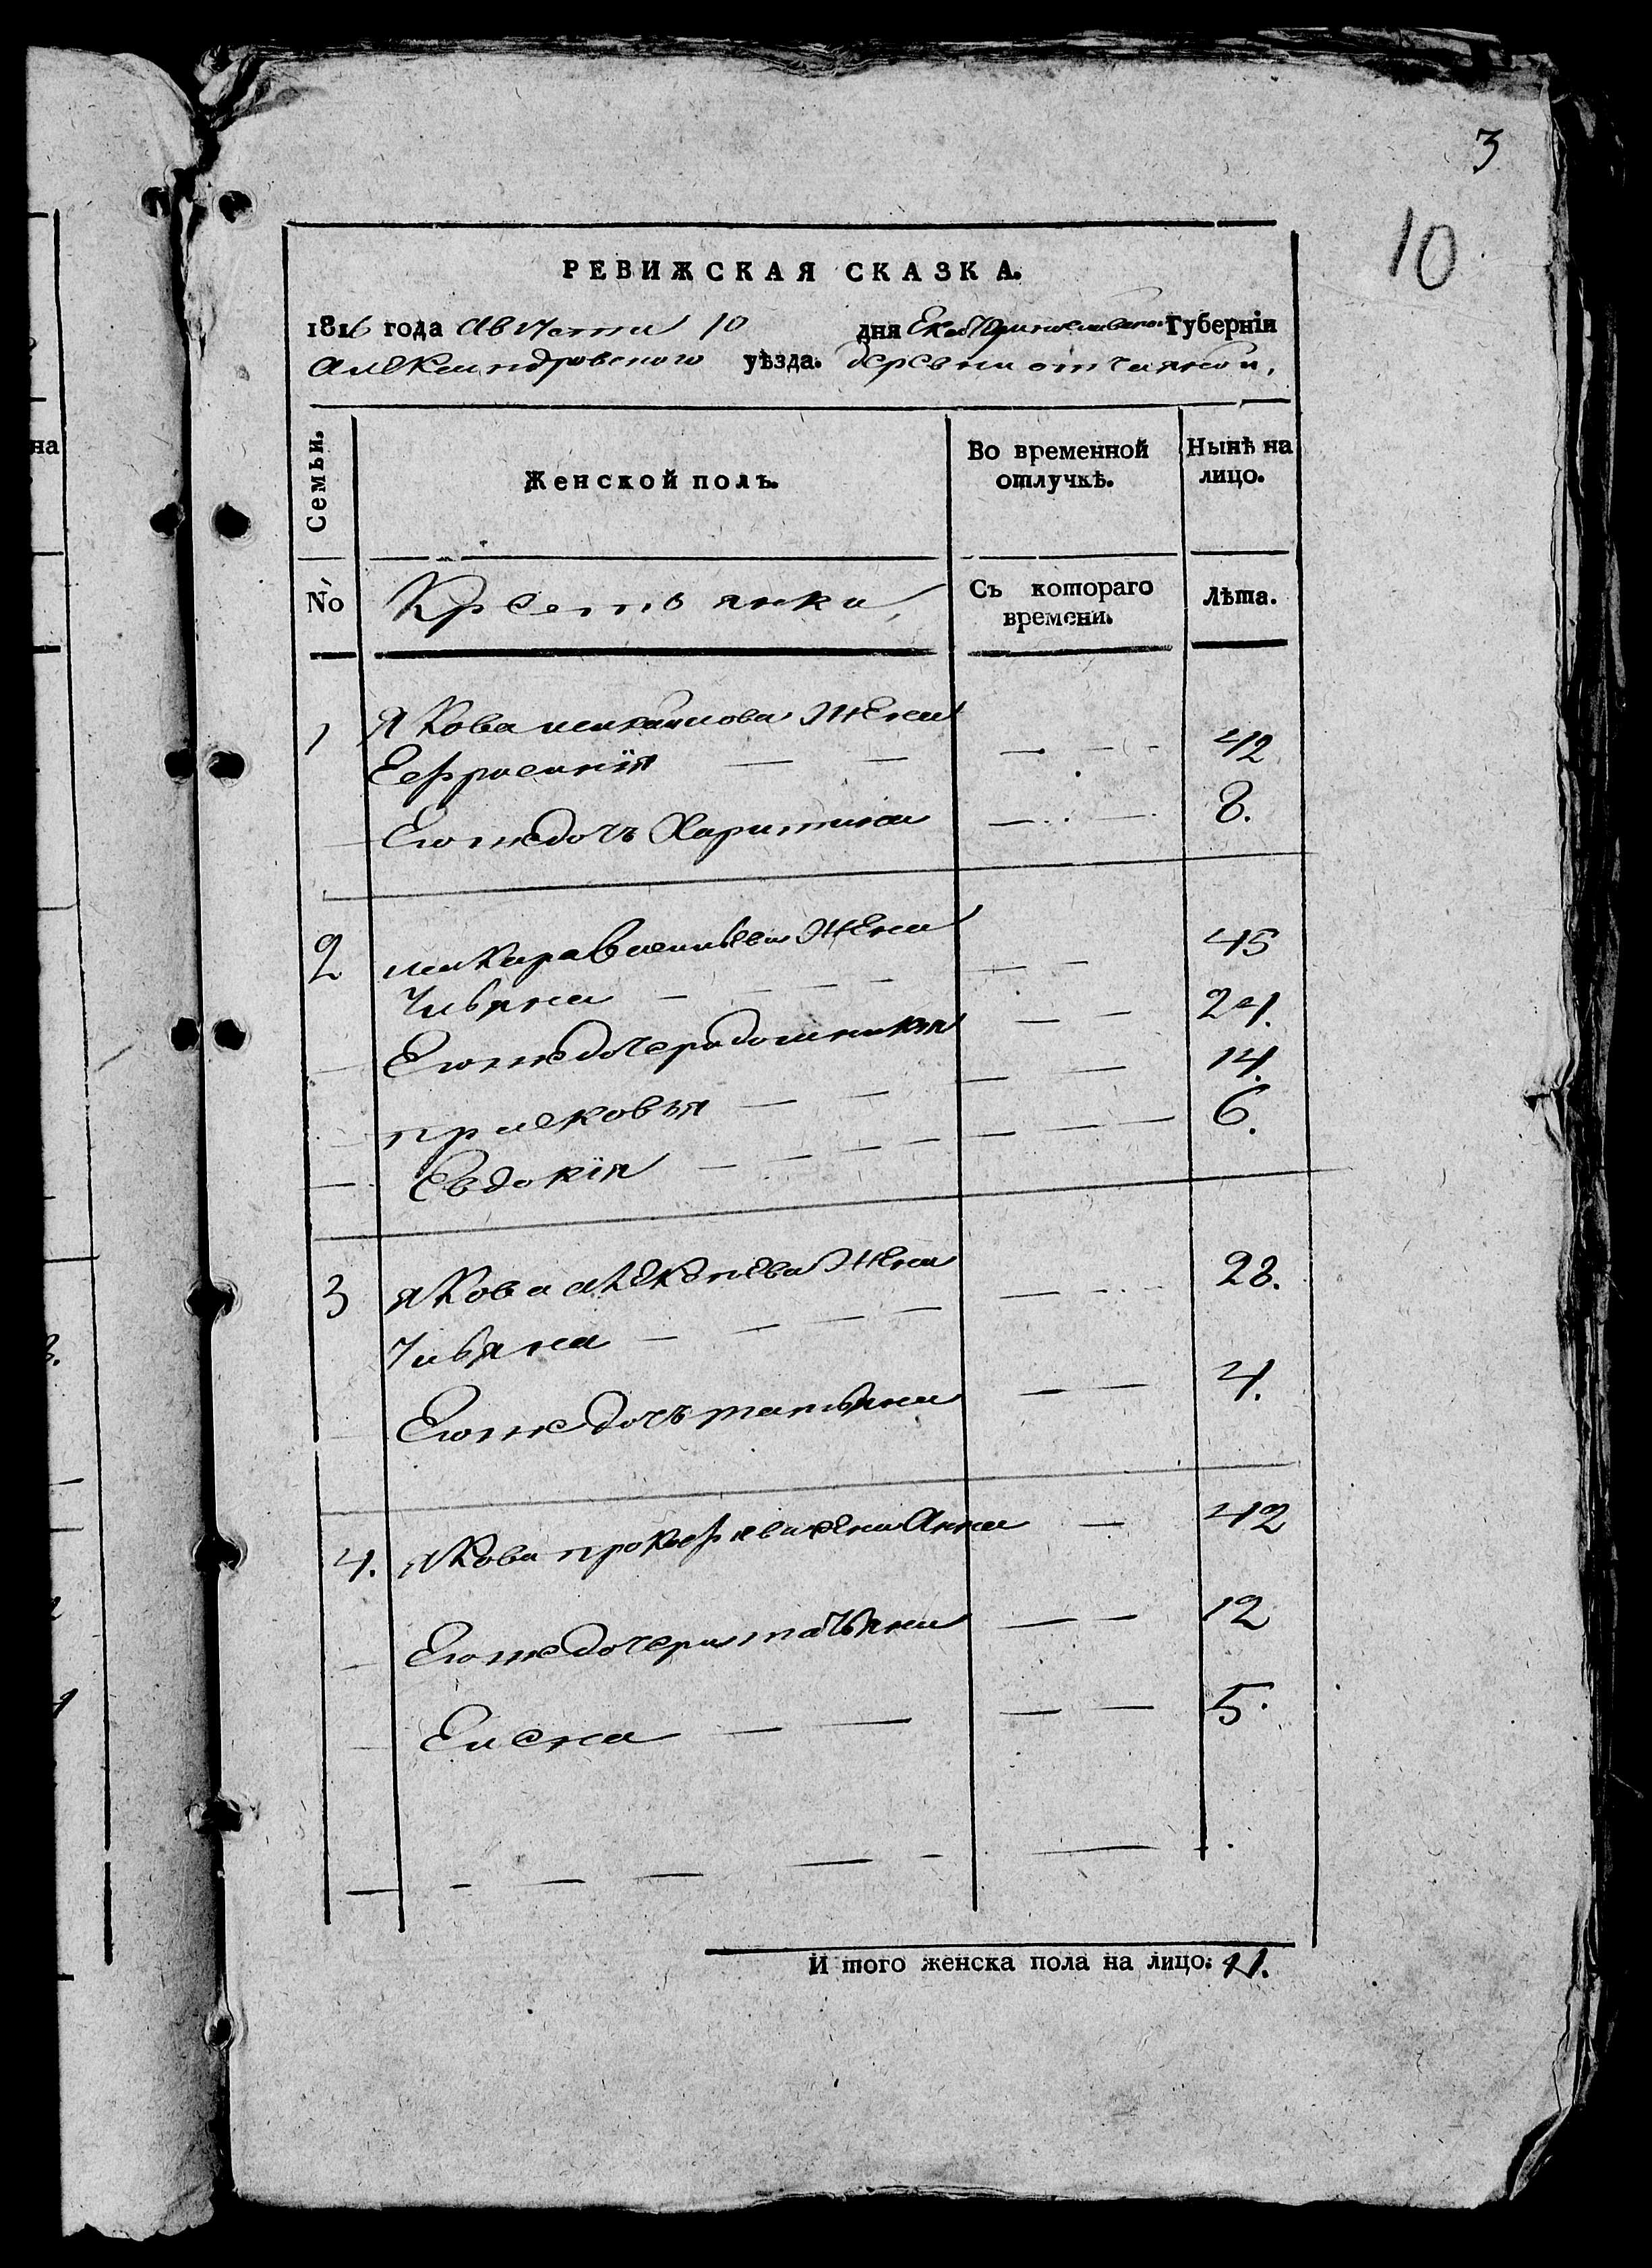 3
10
РЕВИЖСКАЯ СКАЗКА.
1816 года Августа 10 дня Екатеринославской Губерніи
Александровского уѣзда. деревни отчаяной,
Семьи.
Женской полъ.
Во временной отлучкѣ.
Ныиѣ на лицо.
№
Крестьянка
Съ котораго времени.
Лѣта.
1 Якова михайлова Жена
Ефросинія 42
Егожедочь Харитина 8.
2 макара Васильева Жена 45
Ульяна
Егожедочери домникия 24.
14.
прасковъя 6.
Евдокія
3 якова алексѣева Жена 28.
Ульяна
Егоже дочь татьяна 4.
4. якова прокофиева жена Анна 42
Егожедочери татьяна 12
Елена 5.
на
И того женска пола на лицо: 11.